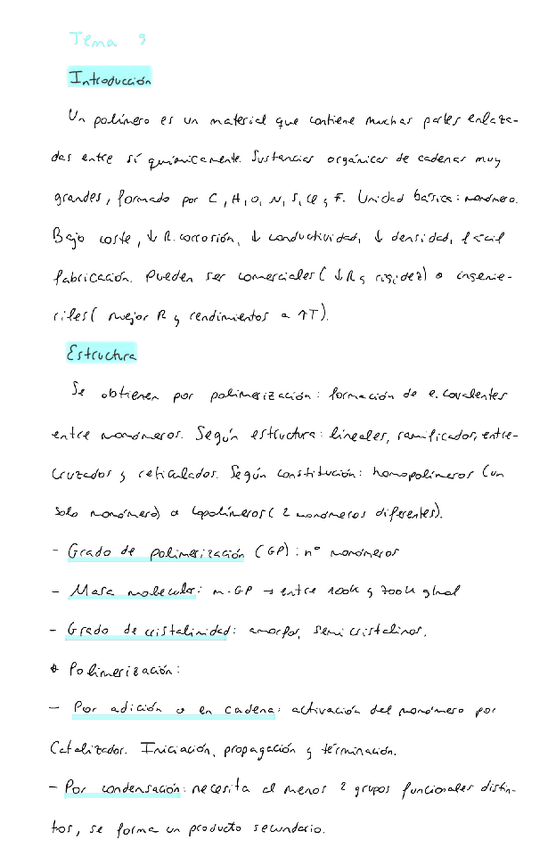 Tema 9
Introducción
Un polímero es un material que contiene muchas partes enlaza-
das entre sí químicamente. Sustancias orgánicas de cadenas muy
grandes, formado por C, H, O, N, S, Cl y F. Unidad básica: monómero.
Bajo coste, ↓ R. corrosión, ↓ conductividad, ↓ densidad, fácil
fabricación. Pueden ser comerciales (↓R y rigidez) o ingenie-
riles (mejor R y rendimientos a ↑T).
Estructura
Se obtienen por polimerización: formación de e. covalentes
entre monómeros. Según estructura: lineales, ramificados, entre-
cruzados y reticulados. Según constitución: homopolímeros (un
solo monómero) o copolímeros (2 monómeros diferentes).
- Grado de polimerización (GP): nº monómeros
- Masa molecular: m·GP → entre 100k y 700k g/mol
- Grado de cristalinidad: amorfos, semicristalinos.
* Polimerización:
- Por adición o en cadena: activación del monómero por
Catalizador. Iniciación, propagación y términación.
- Por condensación: necesita al menos 2 grupos funcionales distin-
tos, se forma un producto secundario.